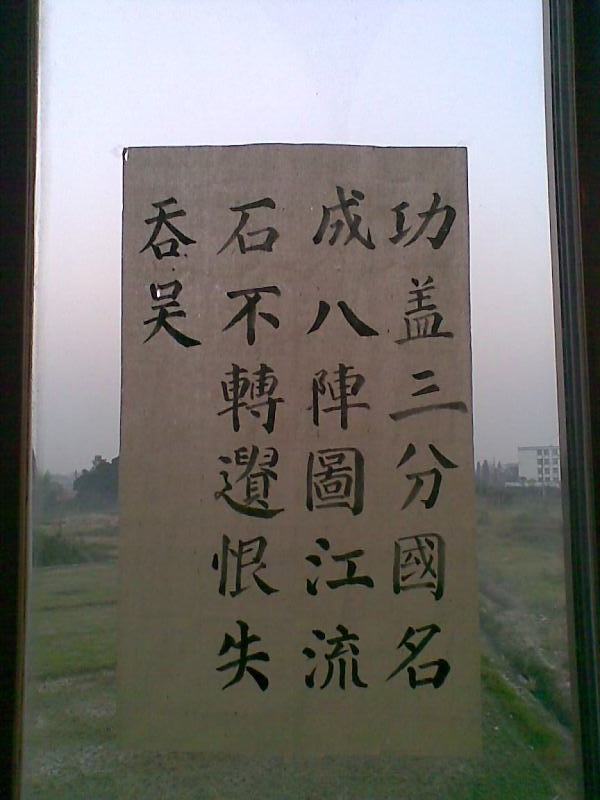 功盖三分國名
成八陣圖江流
石不轉遺恨失
吞吴